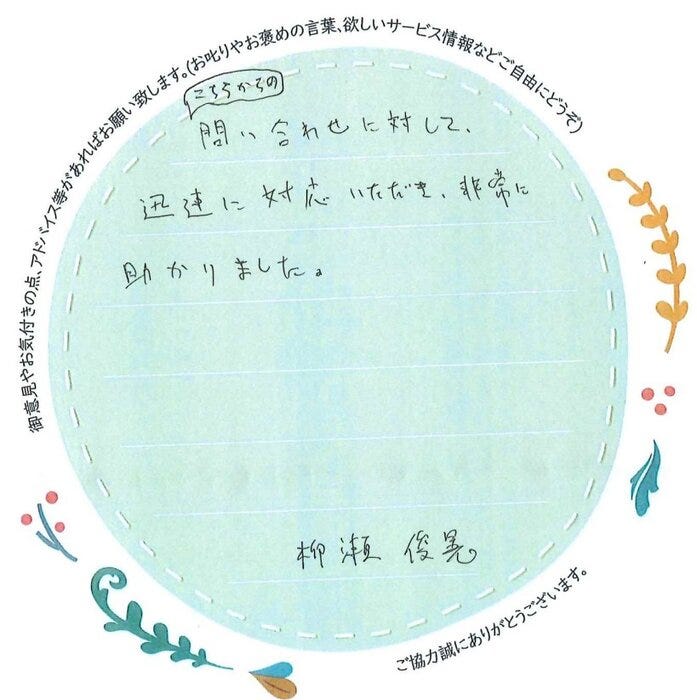 御意見やお気付きの点、アドバイス等があればお願い致します。(お叱りやお褒めの言葉、欲しいサービス情報などご自由にどうぞ)
こちらからの
問い合わせに対して、
迅速に対応いただき、非常に
助かりました。
柳瀬 俊晃
ご協力誠にありがとうございます。